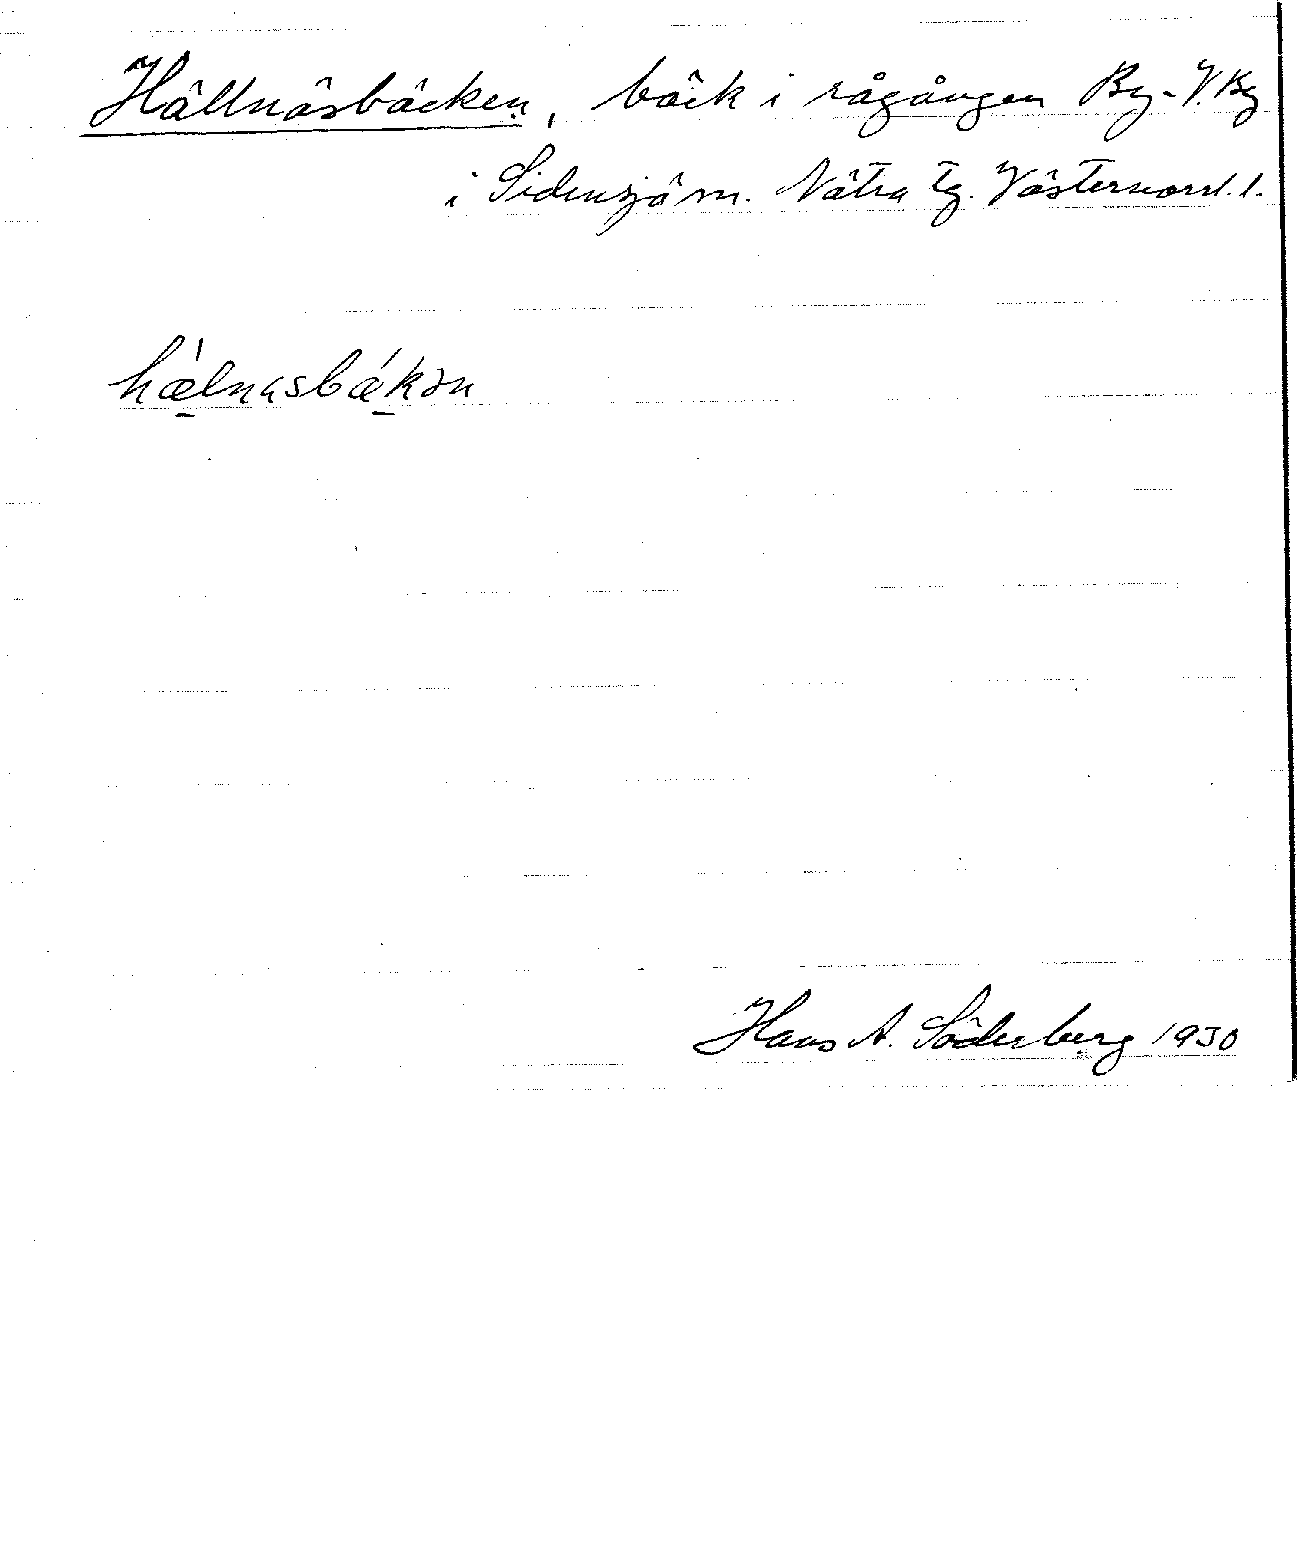 Hällnäsbäcken, bäck i rågången By-V. By
i Sidensjö sn. Nätra tg. Västernorrl. l.
hæ̀lnasbækən
Hans A. Söderberg 1930